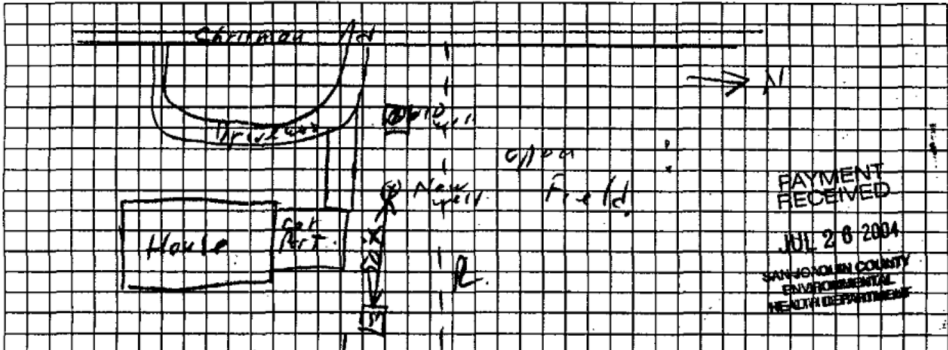 Chrisman Rd
N
Driveway
old
well
open
Field
New
well
House
Car
Prt.
PAYMENT
RECEIVED
JUL 26 2004
SAN JOAQUIN COUNTY
ENVIRONMENTAL
HEALTH DEPARTMENT